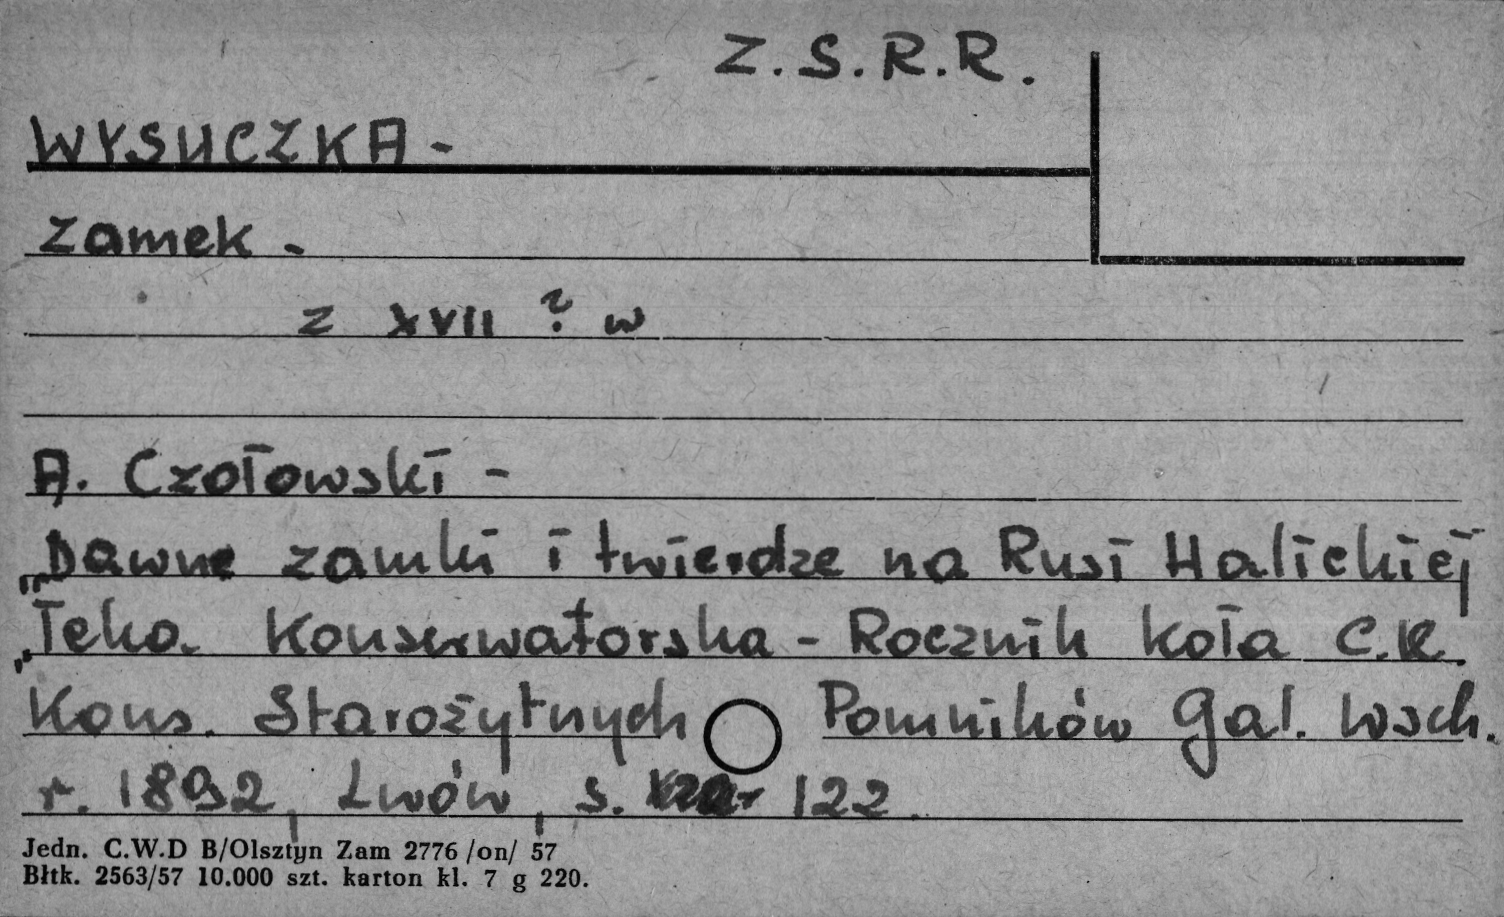 Z.S.R.R.
WYSUCZKA -
zamek -
z XVII ? w
A. Czołowski -
„Dawne zamki i twierdze na Rusi Halickiej
„Teka. Konserwatorska - Rocznik koła C.K.
Kons. Starożytnych Pomników Gal. Wsch.
r. 1892, Lwów, s. 122.
Jedn. C.W.D B/Olsztyn Zam 2776 /on/ 57
Błtk. 2563/57 10.000 szt. karton kl. 7 g 220.